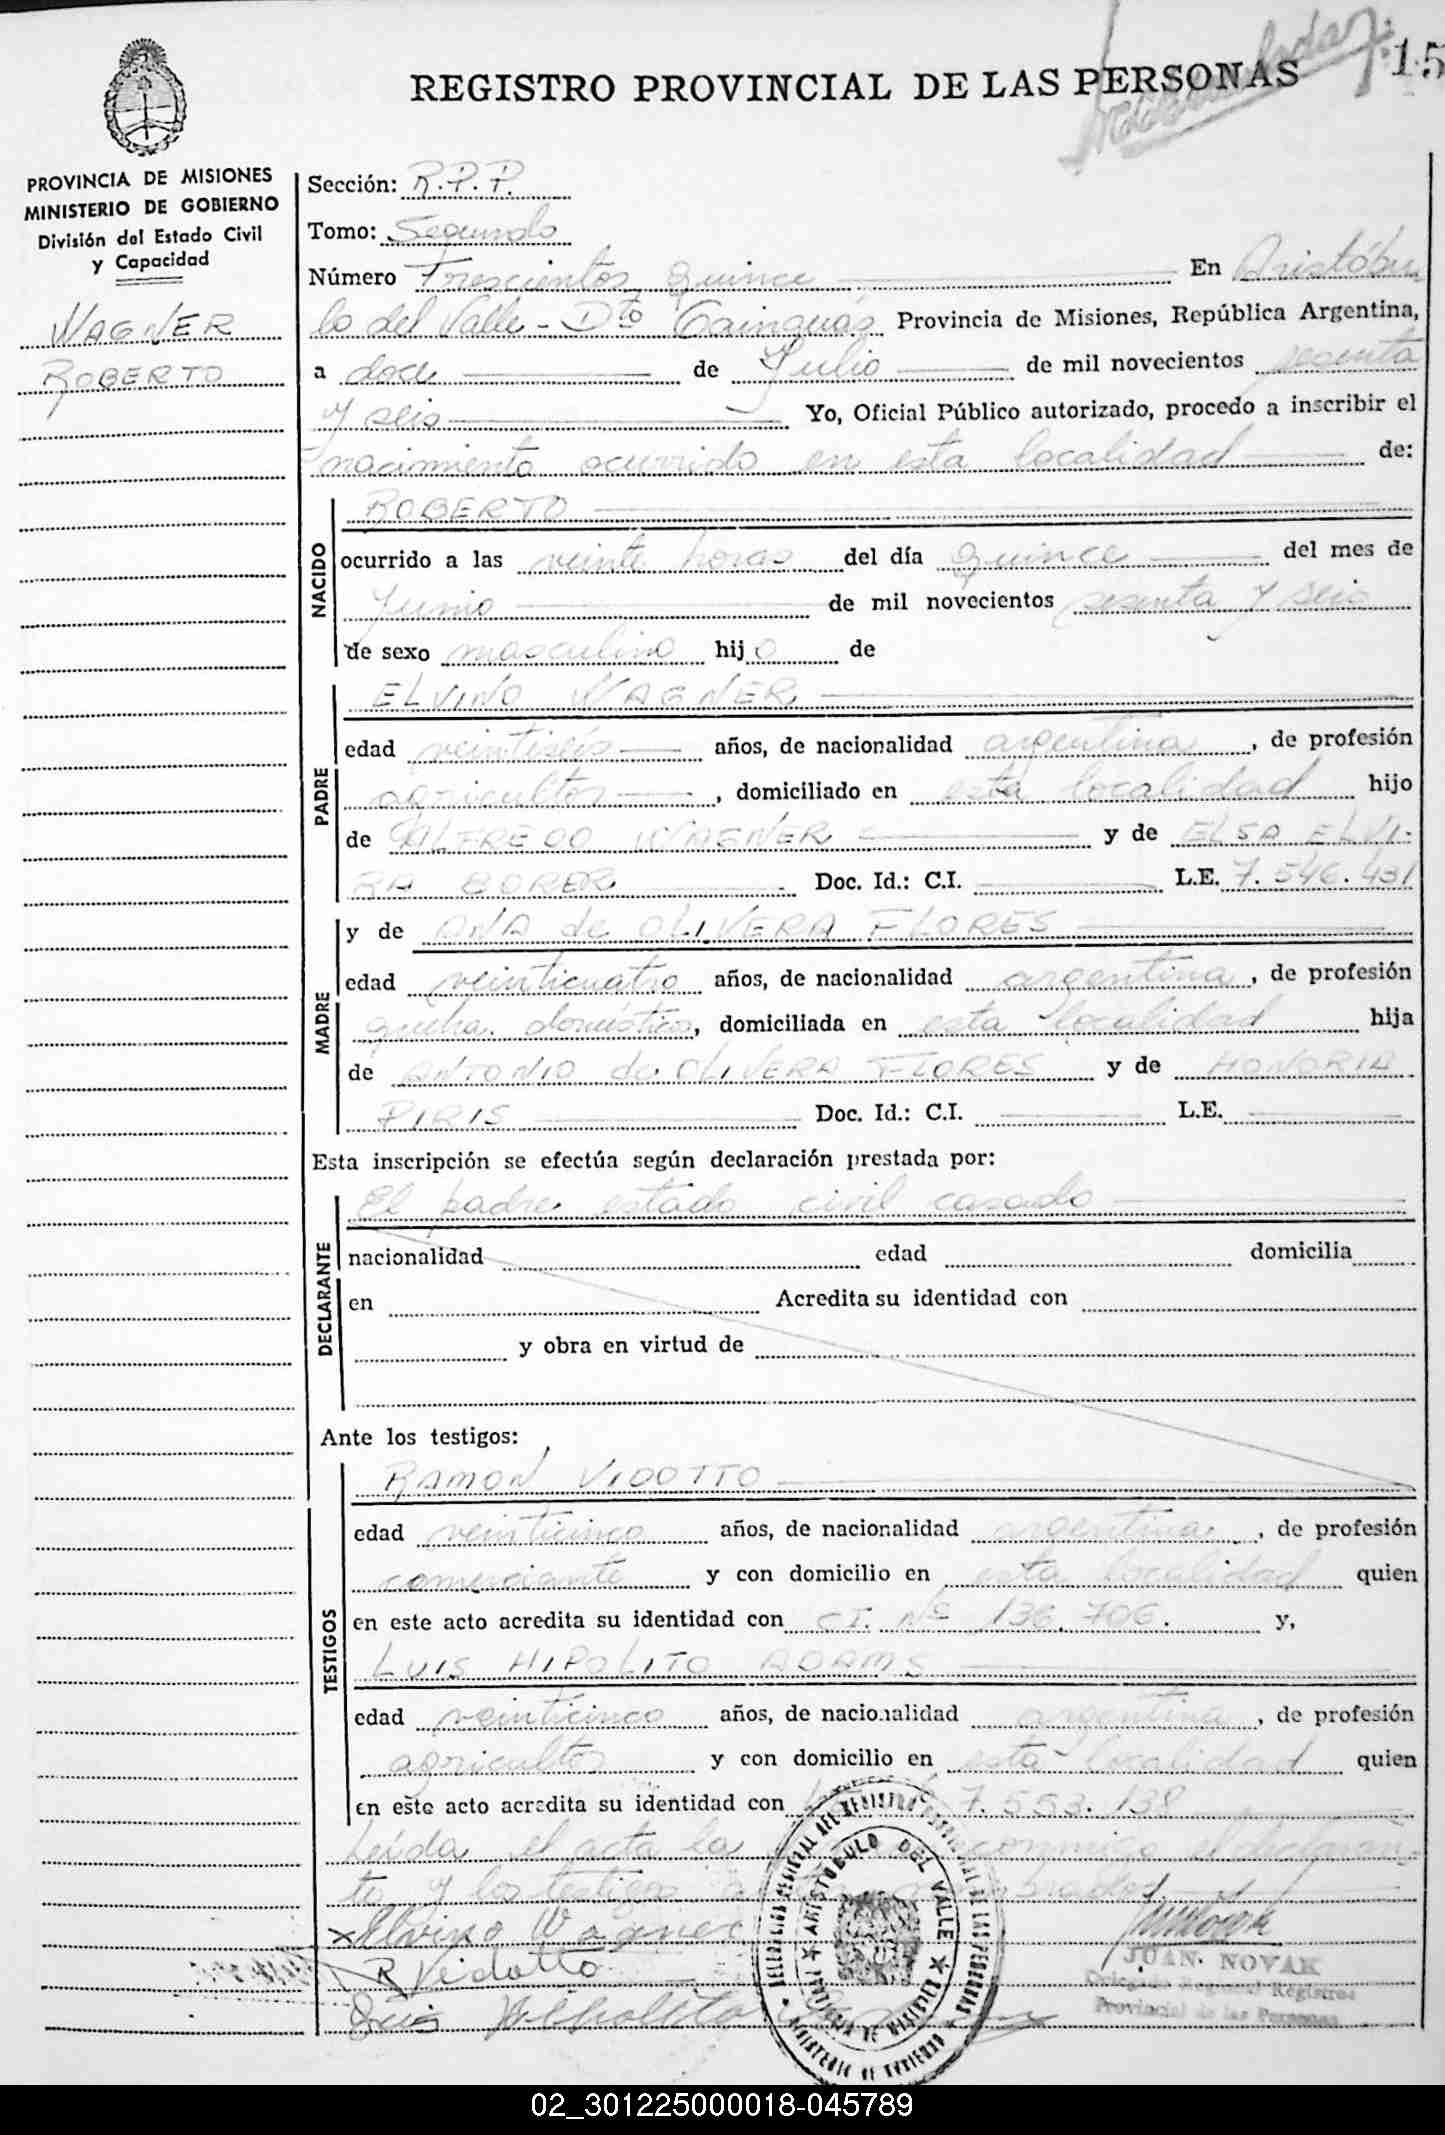 REGISTRO PROVINCIAL DE LAS PERSONAS
15
PROVINCIA DE MISIONES
MINISTERIO DE GOBIERNO
División del Estado Civil
y Capacidad
WAGNER
ROBERTO
Sección: R.P.P.
Tomo: Segundo
Número Trescientos quince En Aristóbu
lo del Valle - Dto Cainguás Provincia de Misiones, República Argentina,
a doce de Julio de mil novecientos sesenta
y seis Yo, Oficial Público autorizado, procedo a inscribir el
nacimiento ocurrido en esta localidad de:
NACIDO
ROBERTO
ocurrido a las veinte horas del día quince del mes de
Junio de mil novecientos sesenta y seis
de sexo masculino hijo de
PADRE
ELVINO WAGNER
edad veintiseis años, de nacionalidad argentina, de profesión
agricultor, domiciliado en esta localidad hijo
de ALFREDO WAGNER y de ELSA ELVI-
RA BORER Doc. Id.: C.I. L.E. 7.546.431
MADRE
y de ANA de OLIVERA FLORES
edad veinticuatro años, de nacionalidad argentina, de profesión
queha. domésticos, domiciliada en esta localidad hija
de ANTONIO de OLIVERA FLORES y de HONORIA
PIRIS Doc. Id.: C.I. L.E.
Esta inscripción se efectúa según declaración prestada por:
DECLARANTE
El padre estado civil casado
nacionalidad edad domicilia
en Acredita su identidad con
y obra en virtud de
Ante los testigos:
TESTIGOS
RAMON VIDOTTO
edad veinticinco años, de nacionalidad argentina, de profesión
comerciante y con domicilio en esta localidad quien
en este acto acredita su identidad con CI. Nº 136.706. y,
LUIS HIPOLITO ADAMS
edad veinticinco años, de nacionalidad argentina, de profesión
agricultor y con domicilio en esta localidad quien
en este acto acredita su identidad con 7.553.138
Leída el acta la conmigo el declaran
te y los testigos
Elvino Wagner
R Vidotto
Luis Hipolito
ARISTOBULO DEL VALLE
JUAN NOVAK
Delegado Regional Registro
Provincial de las Personas
02_301225000018-045789